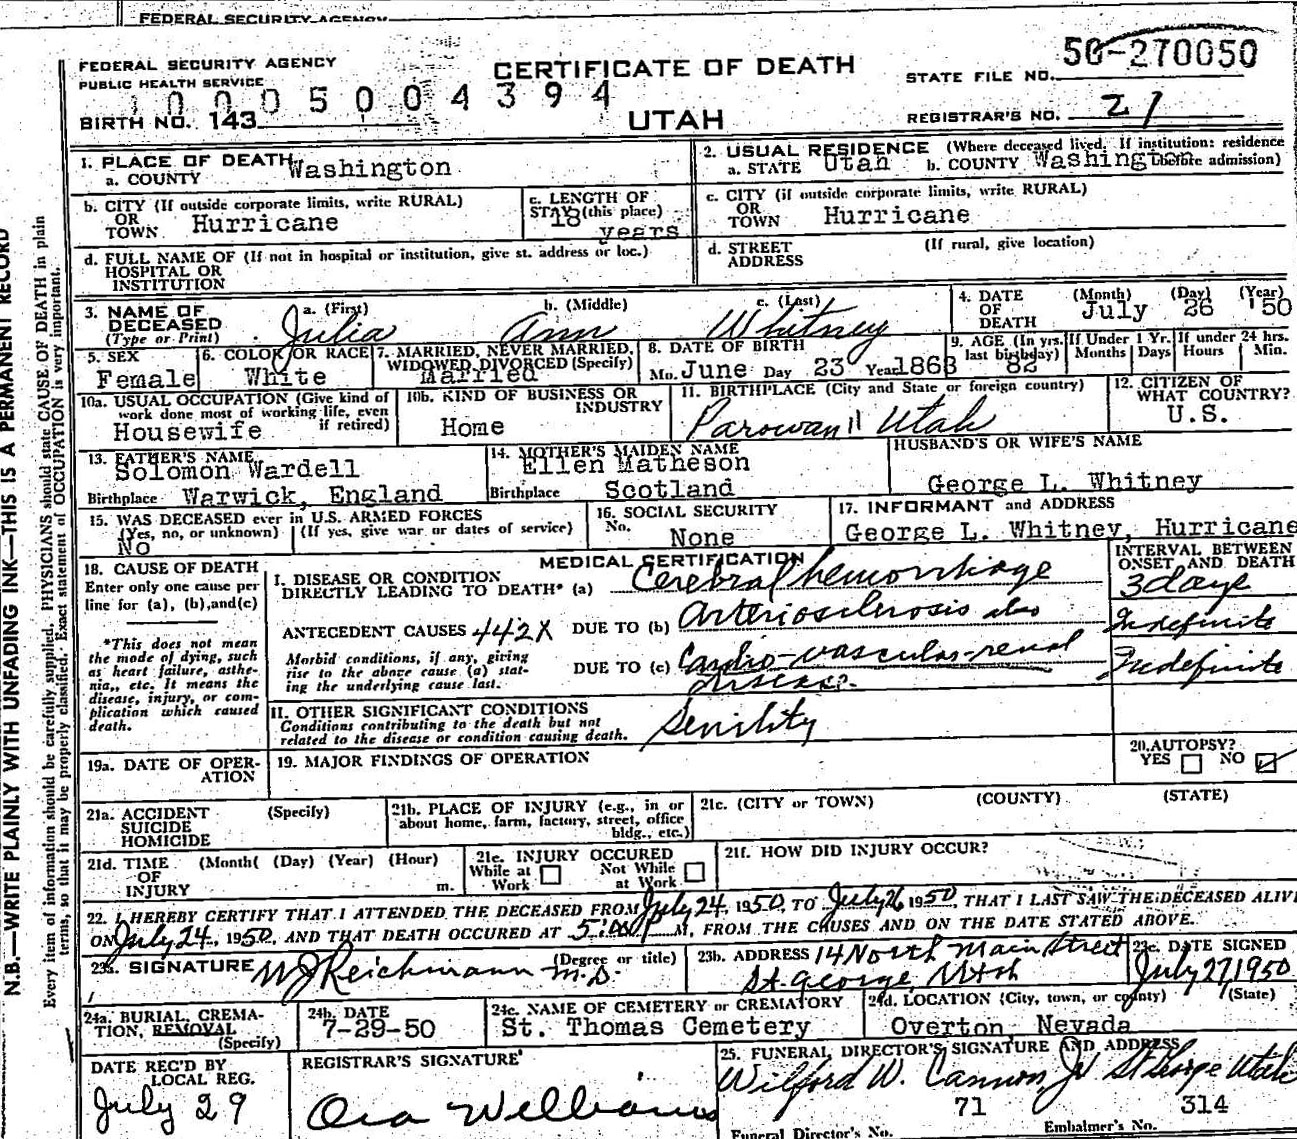 FEDERAL SECURITY AGENCY
FEDERAL SECURITY AGENCY
PUBLIC HEALTH SERVICE
CERTIFICATE OF DEATH
STATE FILE NO. 50-270050
10005004394
BIRTH NO. 143
UTAH
REGISTRAR'S NO. 21
1. PLACE OF DEATH
a. COUNTY Washington
2. USUAL RESIDENCE (Where deceased lived. If institution: residence before admission)
a. STATE Utah b. COUNTY Washington
b. CITY (If outside corporate limits, write RURAL)
OR
TOWN Hurricane
c. LENGTH OF
STAY (this place)
18 years
c. CITY (if outside corporate limits, write RURAL)
OR
TOWN Hurricane
d. FULL NAME OF (If not in hospital or institution, give st. address or loc.)
HOSPITAL OR
INSTITUTION
d. STREET (If rural, give location)
ADDRESS
3. NAME OF
DECEASED
(Type or Print)
a. (First) b. (Middle) c. (Last)
Julia Ann Whitney
4. DATE
OF
DEATH
(Month) (Day) (Year)
July 26 '50
5. SEX
Female
6. COLOR OR RACE
White
7. MARRIED, NEVER MARRIED,
WIDOWED DIVORCED (Specify)
Married
8. DATE OF BIRTH
Mo. June Day 23 Year 1868
9. AGE (In yrs.
last birthday)
82
If Under 1 Yr.
Months Days
If under 24 hrs.
Hours Min.
10a. USUAL OCCUPATION (Give kind of
work done most of working life, even
if retired)
Housewife
10b. KIND OF BUSINESS OR
INDUSTRY
Home
11. BIRTHPLACE (City and State or foreign country)
Parowan Utah
12. CITIZEN OF
WHAT COUNTRY?
U.S.
13. FATHER'S NAME
Solomon Wardell
Birthplace Warwick, England
14. MOTHER'S MAIDEN NAME
Ellen Matheson
Birthplace Scotland
HUSBAND'S OR WIFE'S NAME
George L. Whitney
15. WAS DECEASED ever in U.S. ARMED FORCES
(Yes, no, or unknown) (If yes, give war or dates of service)
No
16. SOCIAL SECURITY
No. None
17. INFORMANT and ADDRESS
George L. Whitney, Hurricane
18. CAUSE OF DEATH
Enter only one cause per
line for (a), (b), and (c)
*This does not mean
the mode of dying, such
as heart failure, asthe-
nia,, etc. It means the
disease, injury, or com-
plication which caused
death.
MEDICAL CERTIFICATION
INTERVAL BETWEEN
ONSET AND DEATH
I. DISEASE OR CONDITION
DIRECTLY LEADING TO DEATH* (a) Cerebral hemorrhage 3 days
ANTECEDENT CAUSES 442X DUE TO (b) Arteriosclerosis also Indefinite
Morbid conditions, if any, giving
rise to the above cause (a) stat-
ing the underlying cause last.
DUE TO (c) Cardio-vascular-renal Indefinite
disease.
II. OTHER SIGNIFICANT CONDITIONS
Conditions contributing to the death but not
related to the disease or condition causing death.
Senility
19a. DATE OF OPER-
ATION
19. MAJOR FINDINGS OF OPERATION
20. AUTOPSY?
YES NO
21a. ACCIDENT (Specify)
SUICIDE
HOMICIDE
21b. PLACE OF INJURY (e.g., in or
about home, farm, factory, street, office
bldg., etc.)
21c. (CITY or TOWN) (COUNTY) (STATE)
21d. TIME (Month( (Day) (Year) (Hour)
OF
INJURY m.
21e. INJURY OCCURED
While at Not While
Work at Work
21f. HOW DID INJURY OCCUR?
22. I HEREBY CERTIFY THAT I ATTENDED THE DECEASED FROM July 24, 1950, TO July 26 1950, THAT I LAST SAW THE DECEASED ALIVE
ON July 24, 1950, AND THAT DEATH OCCURED AT 5:00 P M, FROM THE CAUSES AND ON THE DATE STATED ABOVE.
23a. SIGNATURE (Degree or title)
W J Reichmann M.D.
23b. ADDRESS 14 North Main Street
St. George, Utah
23c. DATE SIGNED
July 27, 1950
24a. BURIAL, CREMA-
TION, REMOVAL
(Specify)
24b. DATE
7-29-50
24c. NAME OF CEMETERY or CREMATORY
St. Thomas Cemetery
24d. LOCATION (City, town, or county) (State)
Overton, Nevada
DATE REC'D BY
LOCAL REG.
July 29
REGISTRAR'S SIGNATURE
Ora Williams
25. FUNERAL DIRECTOR'S SIGNATURE AND ADDRESS
Wilford W. Cannon Jr St George Utah
71 314
Funeral Director's No. Embalmer's No.
N.B.—WRITE PLAINLY WITH UNFADING INK—THIS IS A PERMANENT RECORD
Every item of information should be carefully supplied. PHYSICIANS should state CAUSE OF DEATH in plain
terms, so that it may be properly classified. Exact statement of OCCUPATION is very important.